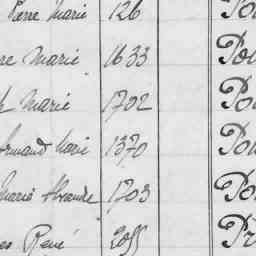 Pierre Marie 126 Pou
re Marie 1633 Pou
h Marie 1702 Pou
Armand Marie 1370 Pou
Marie 1703 Po
es René Pr